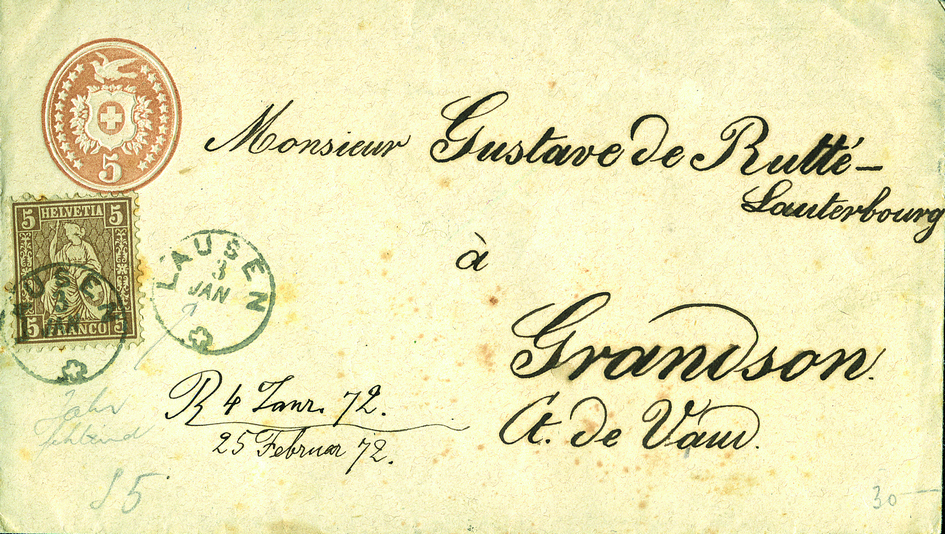 5
5 HELVETIA 5
5 FRANCO 5
LAUSEN
3
JAN
LAUSEN
3
JAN
Monsieur Gustave de Rutté-
Lauterbourg
à
Grandson.
Ct. de Vaud.
R 4 Janr. 72.
25 Februar 72.
Jahr
fehlend
85
30-